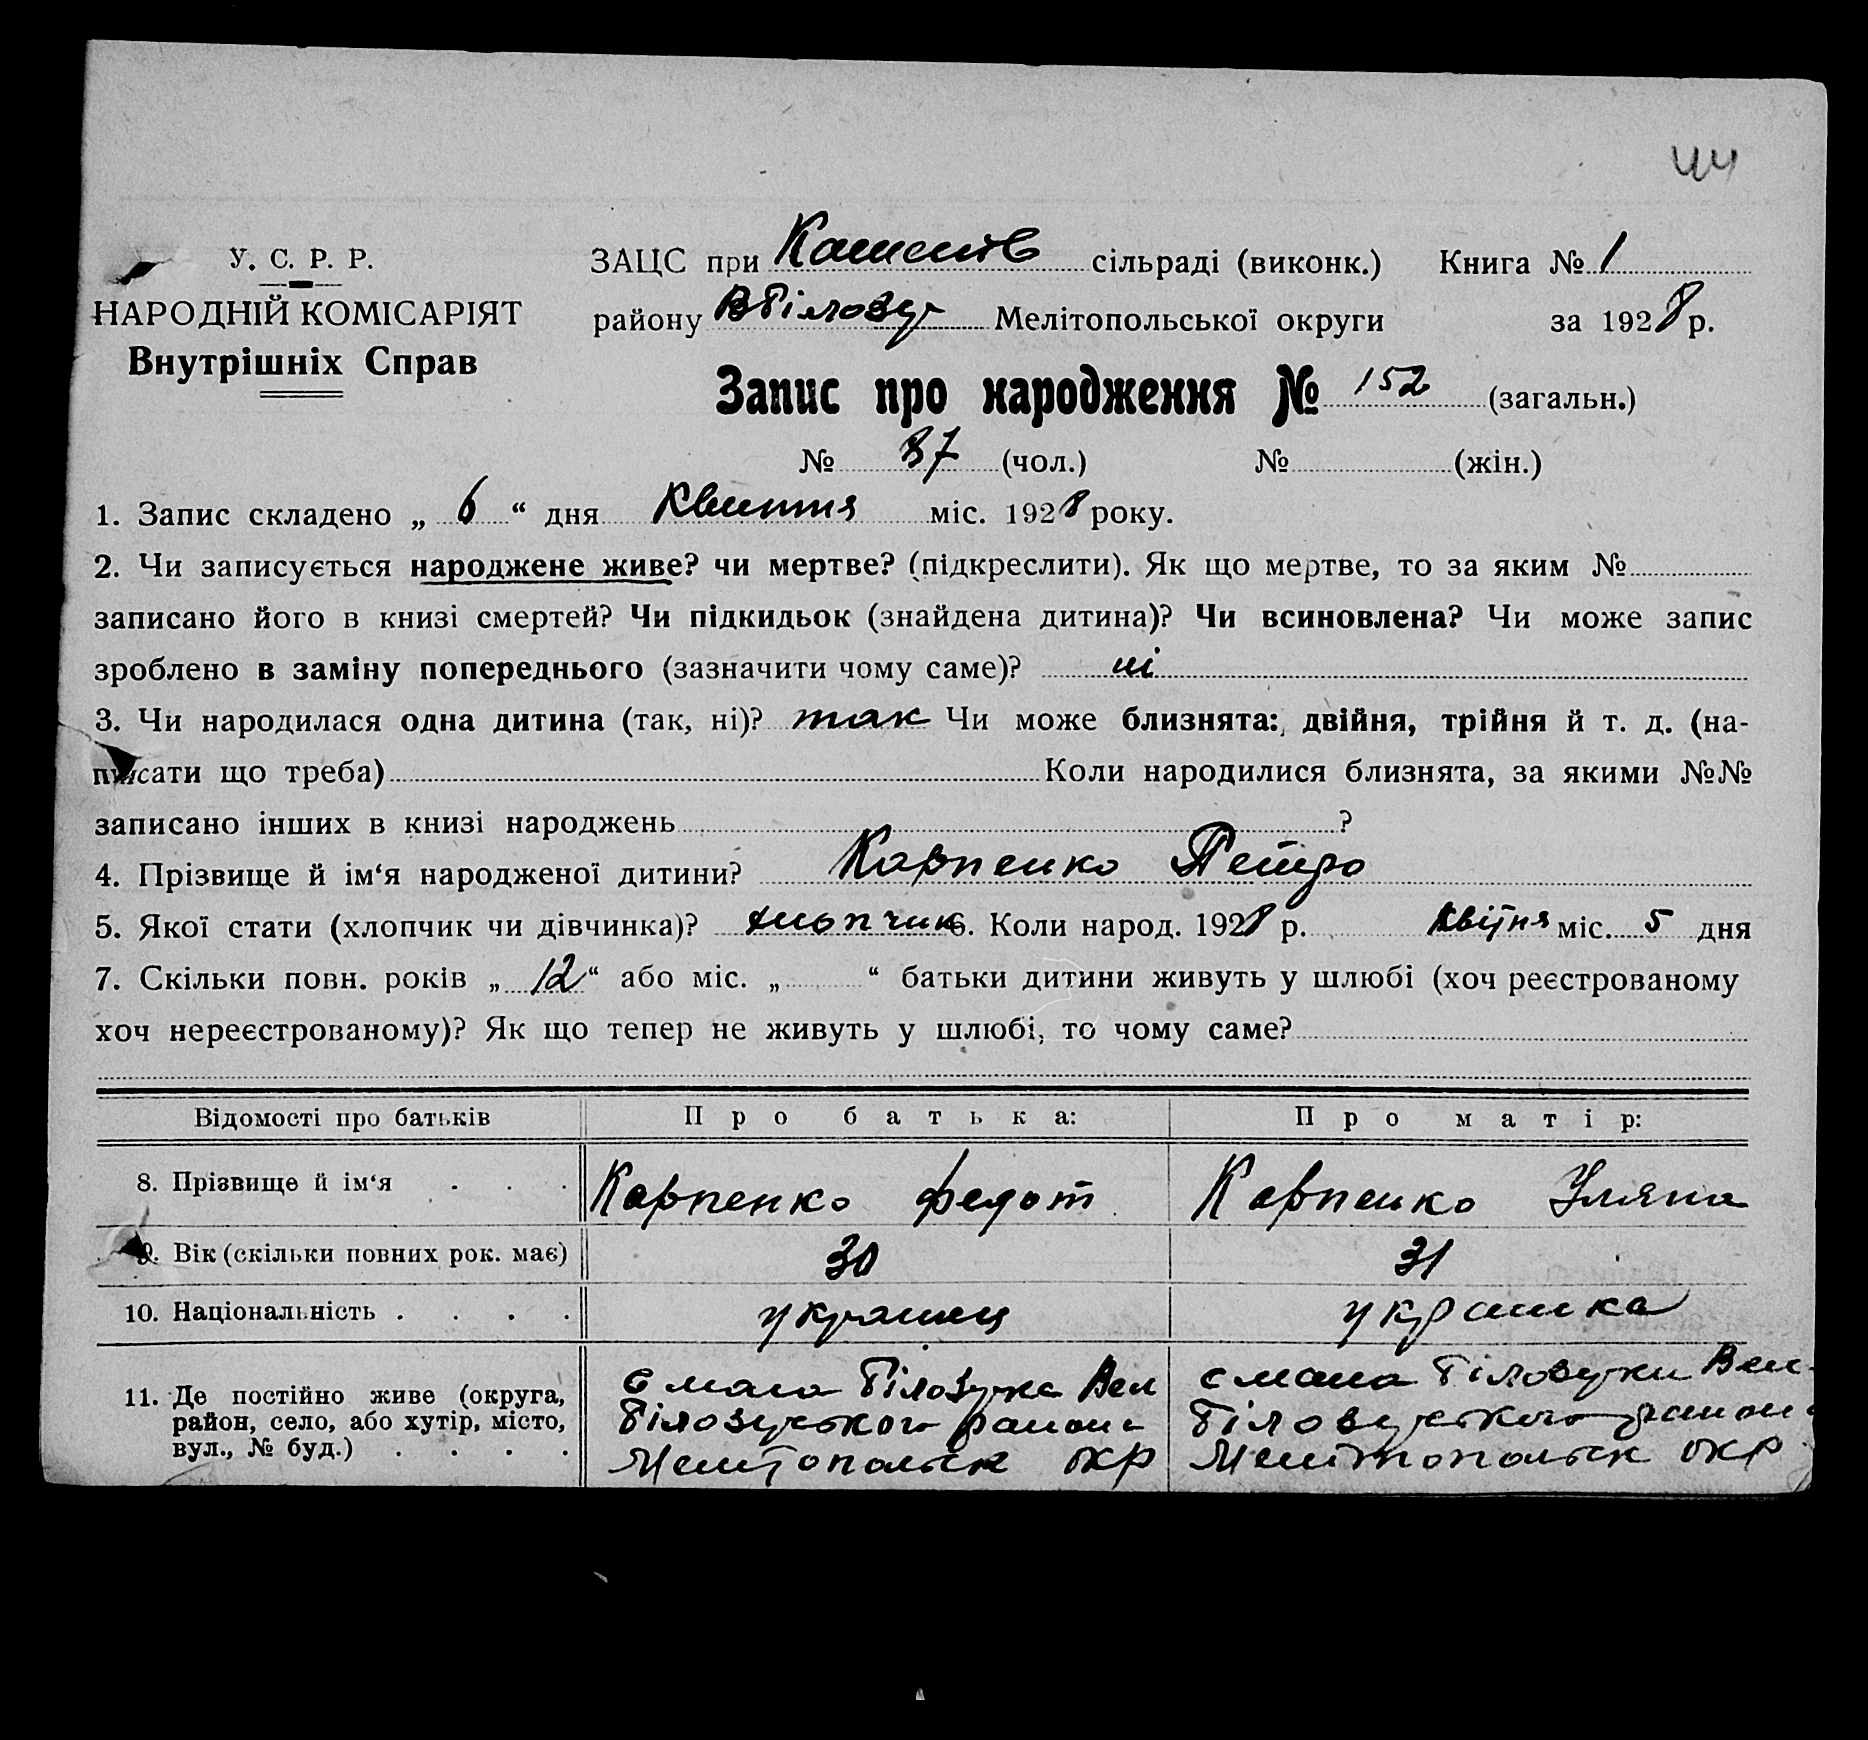 44
У. С. Р. Р.
НАРОДНІЙ КОМІСАРІЯТ
Внутрішніх Справ
ЗАЦС при сільраді (виконк.) Книга № 1
району ВБілозер Мелітопольської округи за 1928 р.
Запис про народження № 152 (загальн.)
№ 87 (чол.) № (жін.)
1. Запис складено „ 6 “ дня Квитня міс. 1928 року.
2. Чи записується народжене живе? чи мертве? (підкреслити). Як що мертве, то за яким №
записано його в книзі смертей? Чи підкидьок (знайдена дитина)? Чи всиновлена? Чи може запис
зроблено в заміну попереднього (зазначити чому саме)? ні
3. Чи народилася одна дитина (так, ні)? так Чи може близнята: двійня, трійня й т. д. (на-
писати що треба) Коли народилися близнята, за якими №№
записано інших в книзі народжень ?
4. Прізвище й ім‘я народженої дитини? Карпенко Петро
5. Якої стати (хлопчик чи дівчинка)? хлопчик 6. Коли народ. 1928 р. Квітня міс. 5 дня
7. Скільки повн. років „ 12 “ або міс. „ “ батьки дитини живуть у шлюбі (хоч реєстрованому
хоч нереєстрованому)? Як що тепер не живуть у шлюбі, то чому саме?
Відомості про батьків Про батька: Про матір:
8. Прізвище й ім‘я . . . Карпенко Федот Карпенко Уляна
9. Вік (скільки повних рок. має) 30 31
10. Національність . . . . українец українка
11. Де постійно живе (округа,
район, село, або хутір, місто,
вул., № буд.) . . . .
с мала Білозерка Вел
Білозерського района
Мелітопольск окр
с мала Білозерки Вел-
Білозерського района
Мелітопольск окр